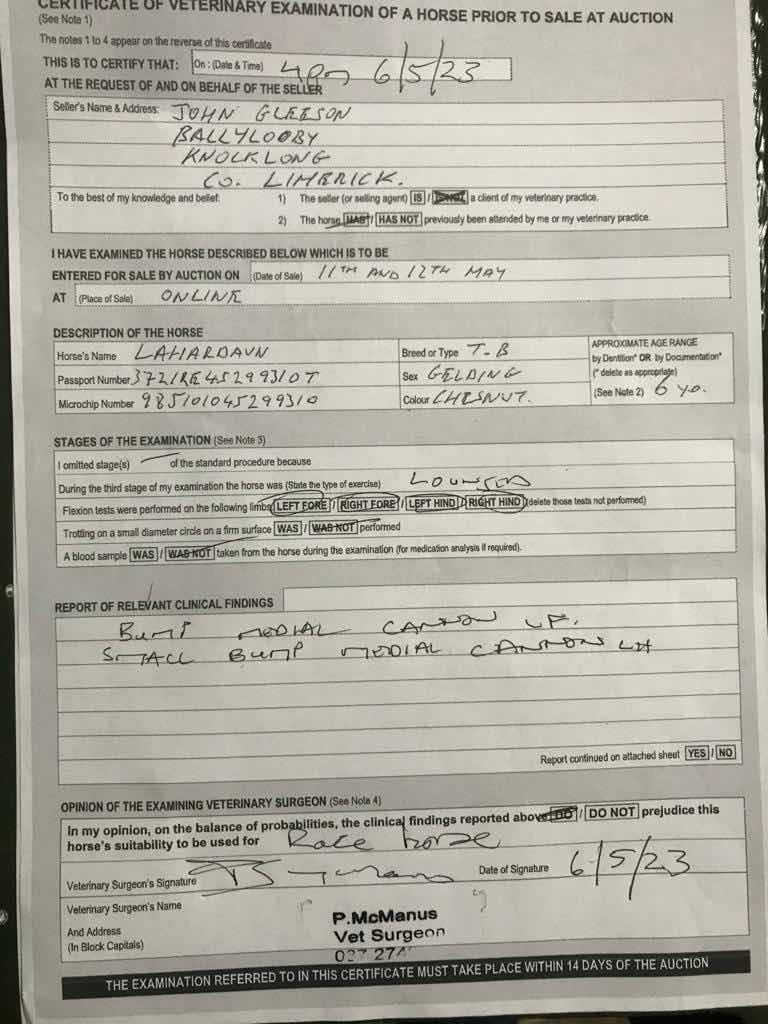 CERTIFICATE OF VETERINARY EXAMINATION OF A HORSE PRIOR TO SALE AT AUCTION
(See Note 1)
The notes 1 to 4 appear on the reverse of this certificate
THIS IS TO CERTIFY THAT: On : (Date & Time) 4pm 6/5/23
AT THE REQUEST OF AND ON BEHALF OF THE SELLER
Seller's Name & Address: JOHN GLEESON
BALLYLOOBY
KNOCKLONG
CO. LIMERICK.
To the best of my knowledge and belief: 1) The seller (or selling agent) IS / IS NOT a client of my veterinary practice.
2) The horse HAS / HAS NOT previously been attended by me or my veterinary practice.
I HAVE EXAMINED THE HORSE DESCRIBED BELOW WHICH IS TO BE
ENTERED FOR SALE BY AUCTION ON (Date of Sale) 11TH AND 12TH MAY
AT (Place of Sale) ONLINE
DESCRIPTION OF THE HORSE
Horse's Name LAHARDAUN Breed or Type T-B APPROXIMATE AGE RANGE
by Dentition* OR by Documentation*
Passport Number 372IRE45299310T Sex GELDING (* delete as appropriate)
(See Note 2) 6 y.o.
Microchip Number 985101045299310 Colour CHESNUT.
STAGES OF THE EXAMINATION (See Note 3)
I omitted stage(s) of the standard procedure because
During the third stage of my examination the horse was (State the type of exercise) LOUNGED
Flexion tests were performed on the following limbs LEFT FORE / RIGHT FORE / LEFT HIND / RIGHT HIND (delete those tests not performed)
Trotting on a small diameter circle on a firm surface WAS / WAS NOT performed
A blood sample WAS / WAS NOT taken from the horse during the examination (for medication analysis if required).
REPORT OF RELEVANT CLINICAL FINDINGS
BUMP MEDIAL CANNON LF.
SMALL BUMP MEDIAL CANNON LH
Report continued on attached sheet YES / NO
OPINION OF THE EXAMINING VETERINARY SURGEON (See Note 4)
In my opinion, on the balance of probabilities, the clinical findings reported above DO / DO NOT prejudice this
horse's suitability to be used for Race horse
Veterinary Surgeon's Signature Date of Signature 6/5/23
Veterinary Surgeon's Name
And Address
(In Block Capitals)
P.McManus
Vet Surgeon
THE EXAMINATION REFERRED TO IN THIS CERTIFICATE MUST TAKE PLACE WITHIN 14 DAYS OF THE AUCTION